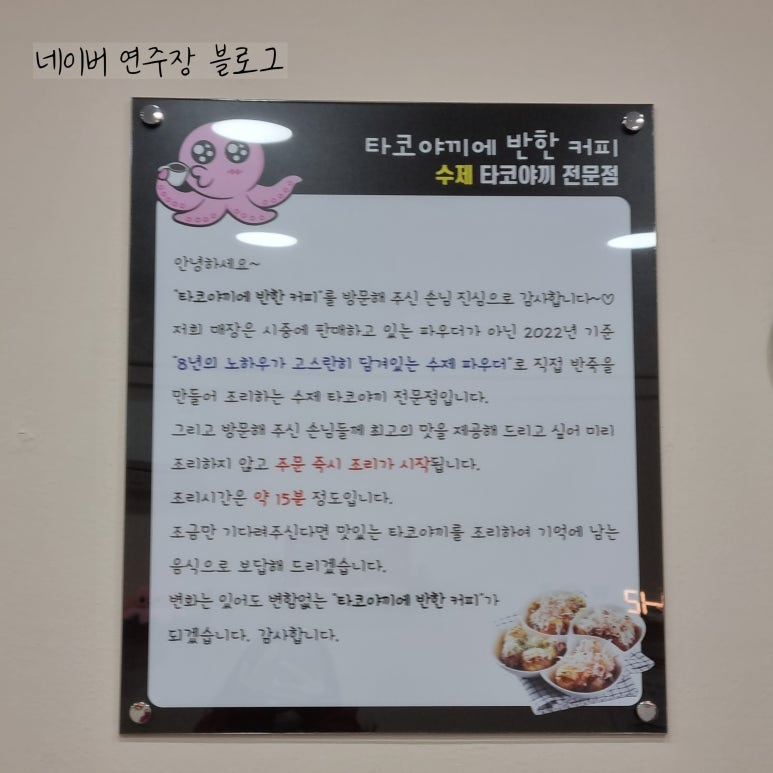 네이버 연주장 블로그
타코야끼에 반한 커피
수제 타코야끼 전문점
안녕하세요~
"타코야끼에 반한 커피"를 방문해 주신 손님 진심으로 감사합니다~♡
저희 매장은 시중에 판매하고 있는 파우더가 아닌 2022년 기준
"8년의 노하우가 고스란히 담겨있는 수제 파우더"로 직접 반죽을
만들어 조리하는 수제 타코야끼 전문점입니다.
그리고 방문해 주신 손님들께 최고의 맛을 제공해 드리고 싶어 미리
조리하지 않고 주문 즉시 조리가 시작됩니다.
조리시간은 약 15분 정도입니다.
조금만 기다려주신다면 맛있는 타코야끼를 조리하여 기억에 남는
음식으로 보답해 드리겠습니다.
변화는 있어도 변함없는 "타코야끼에 반한 커피"가
되겠습니다. 감사합니다.